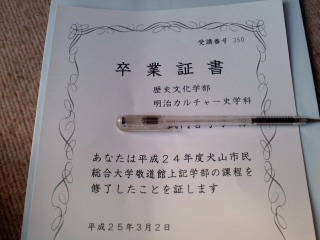 受講番号 350
卒業証書
歴史文化学部
明治カルチャー史学科
あなたは平成24年度犬山市民
総合大学敬道館上記学部の課程を
修了したことを証します
平成25年3月2日